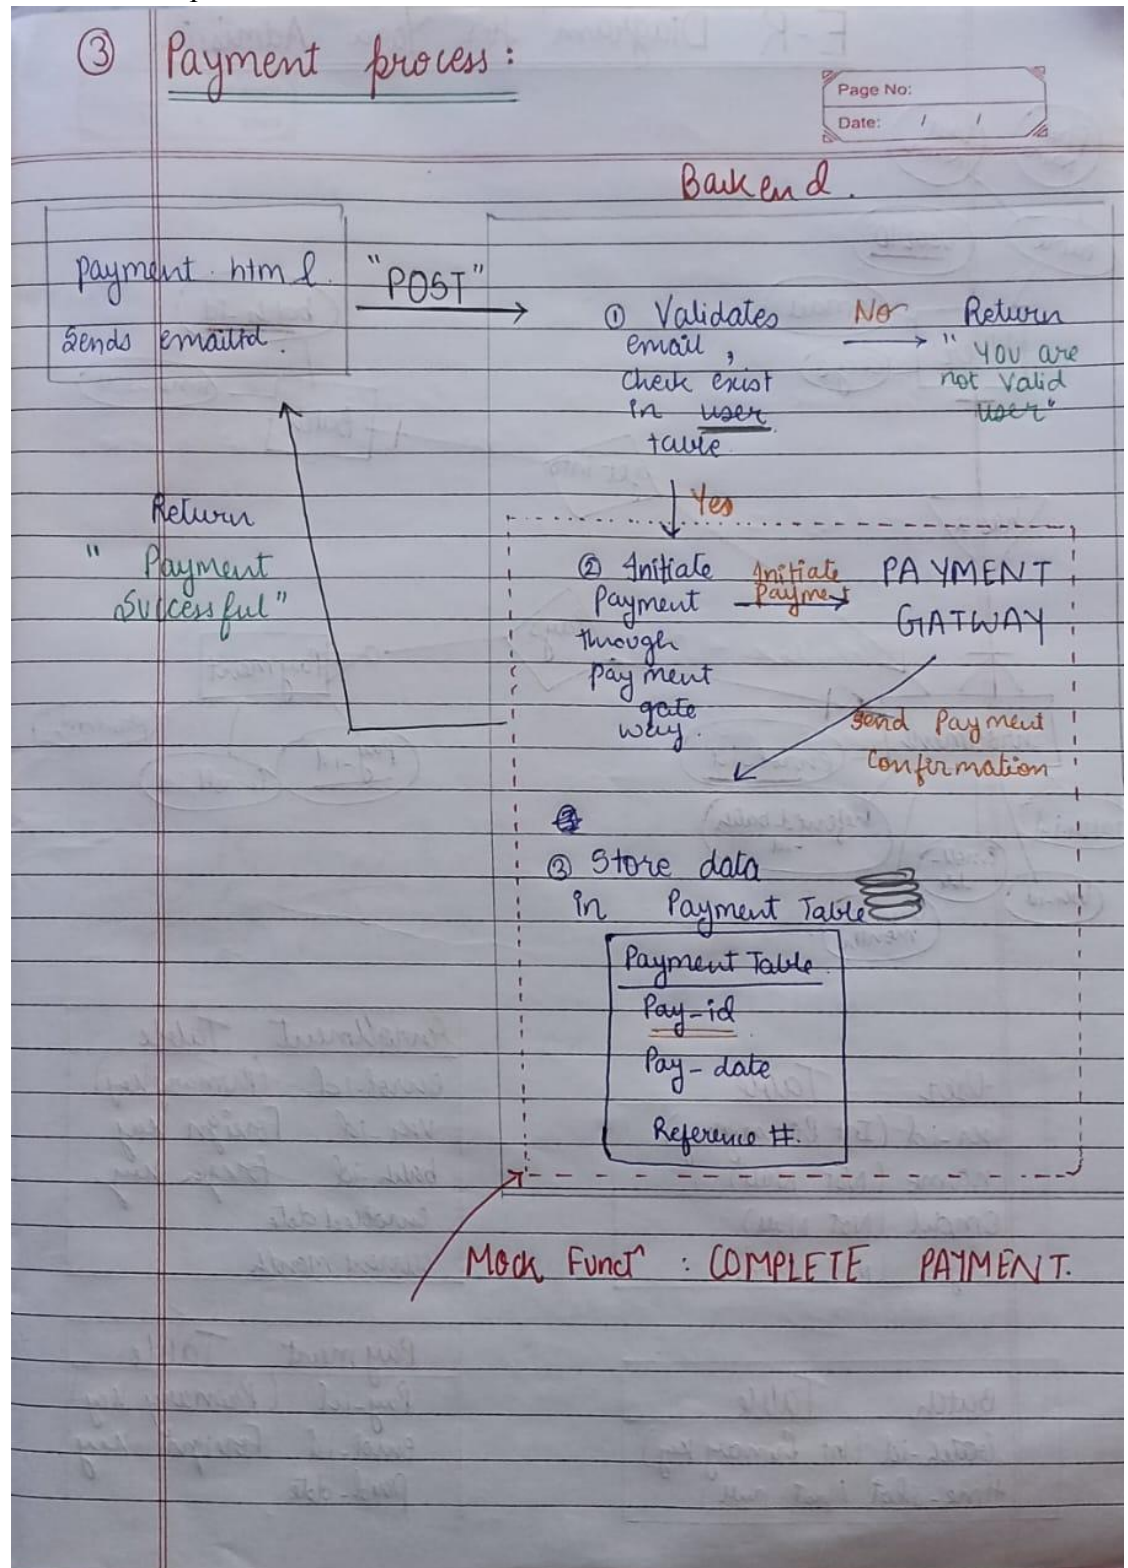 ③ Payment process:
Page No:
Date: / /
Backend.
payment.html.
sends emailId.
"POST"
① Validates
email,
check exist
in user
table
No
Return
"You are
not valid
user"
Yes
Return
"Payment
Successful"
② Initiate
Payment
through
payment
gate
way.
Initiate
Payment
PAYMENT
GATWAY
Send Payment
Confirmation
③ Store data
in Payment Table
Payment Table
Pay-id
Pay-date
Reference #.
Mock Funct^n : COMPLETE PAYMENT.